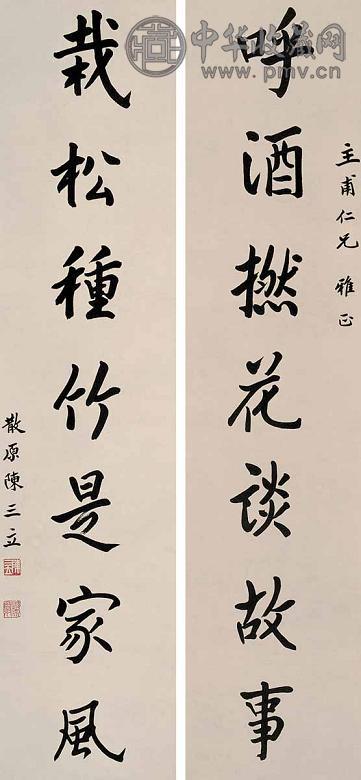 呼酒撚花談故事
主甫仁兄 雅正
栽松種竹是家風
散原陳三立
中华收藏网
www.pmv.cn